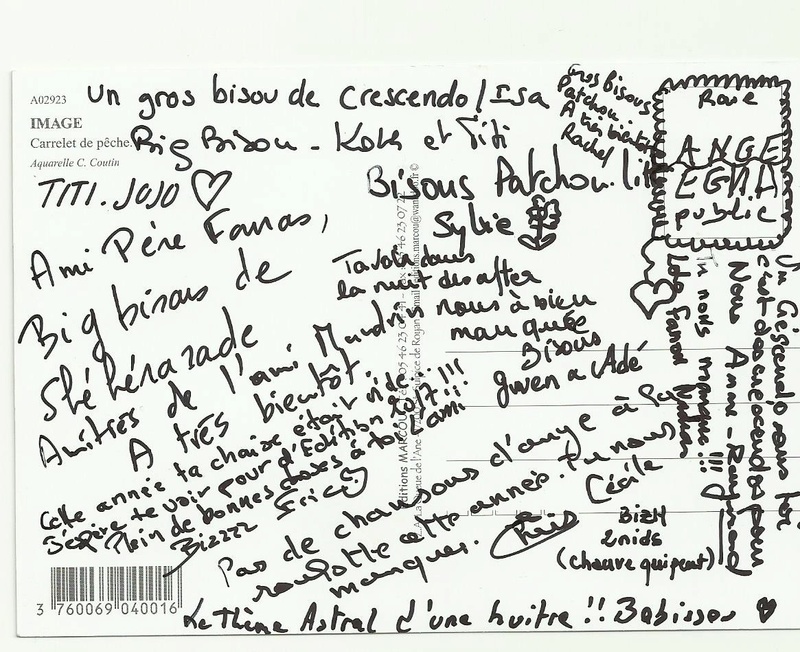 A02923
IMAGE
Carrelet de pêche.
Aquarelle C. Coutin
un gros bisou de Crescendo / Isa
Big Bisou - Koks et Titi
Gros bisous
Patchou
A très bientôt
Rachel
Rose
ANGE
EGNA
public
TITI. JOJO
Bisous Patchou.
Sylvie
Ami Père Fouras,
Big bisous de
Shéhérazade
Amitiés de l'ami Maudris
A très bientôt.
T'avoir dans
la nuit des after
nous à bien
manquée
Bisous
Gwen a Adé
Cette année ta chaise était vide.
J'espère te voir pour l'Edition 2017 !!!
Plein de bonnes choses à toi l'ami
Bizzzz Eric
Pas de chansons d'ange à la
roulotte cette année. Tu nous
manques. Chris
Cécile
BIZH
2nids
(chauve quipeut)
Tu nous manques !!!
Un Crescendo sans toi
c'est des
Nous Anne - Raymond
Editions MARCOU
3 760069 040016
Le Thème Astral d'une huitre !! Babisson